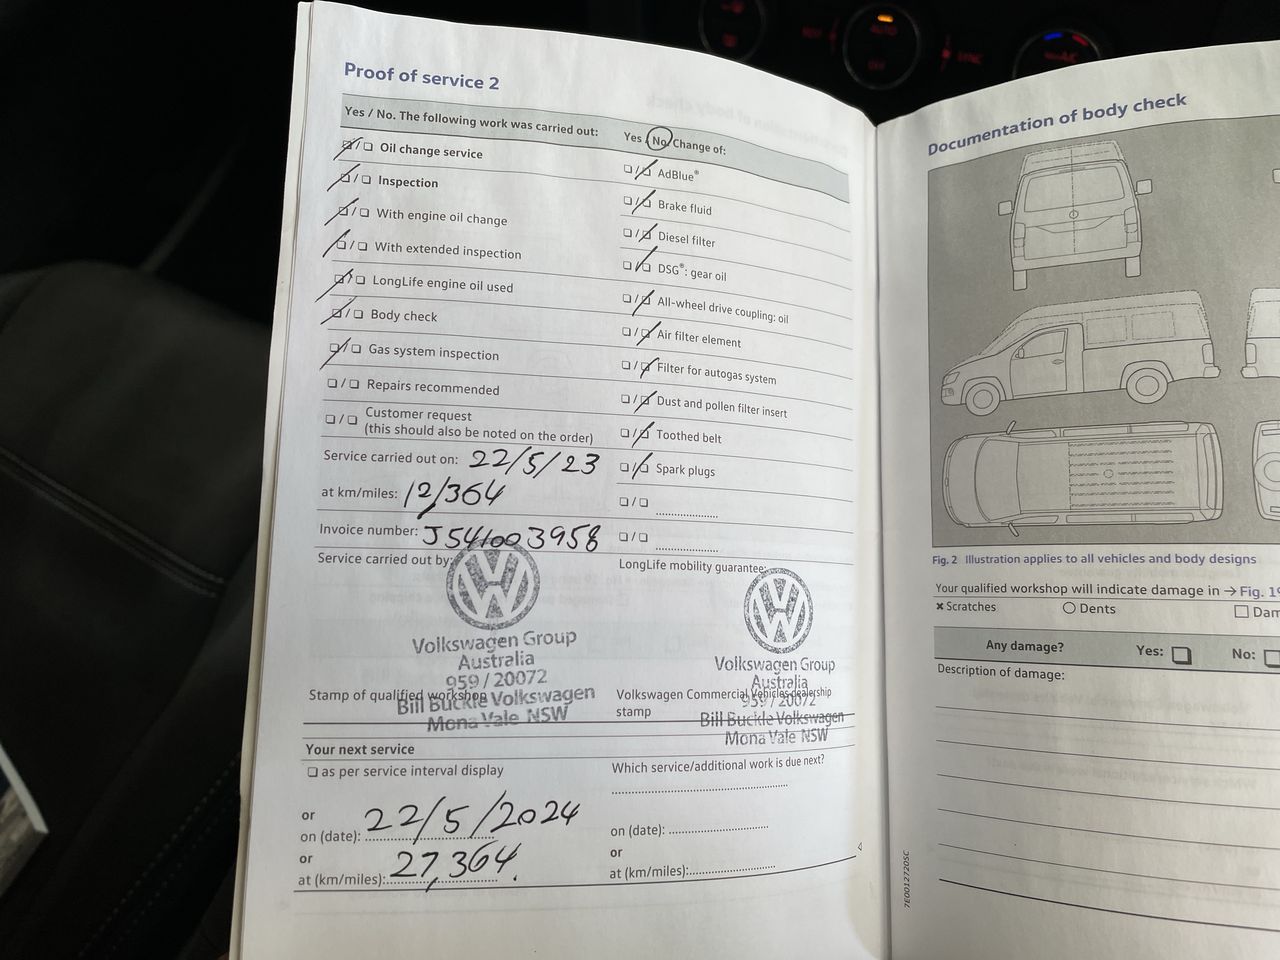 Proof of service 2
Yes / No. The following work was carried out:
Oil change service
Inspection
With engine oil change
With extended inspection
LongLife engine oil used
Body check
Gas system inspection
Repairs recommended
Customer request
(this should also be noted on the order)
Service carried out on: 22/5/23
at km/miles: 12,364
Invoice number: J541003958
Service carried out by:
Volkswagen Group
Australia
959 / 20072
Stamp of qualified workshop
Bill Buckle Volkswagen
Mona Vale NSW
Yes / No. Change of:
AdBlue®
Brake fluid
Diesel filter
DSG®: gear oil
All-wheel drive coupling: oil
Air filter element
Filter for autogas system
Dust and pollen filter insert
Toothed belt
Spark plugs
LongLife mobility guarantee:
Volkswagen Group
Australia
Volkswagen Commercial Vehicles dealership
959 / 20072
stamp
Bill Buckle Volkswagen
Mona Vale NSW
Your next service
as per service interval display
or
on (date): 22/5/2024
or
at (km/miles): 27,364.
Which service/additional work is due next?
on (date):
or
at (km/miles):
Documentation of body check
Fig. 2 Illustration applies to all vehicles and body designs
Your qualified workshop will indicate damage in → Fig. 19
× Scratches
Dents
Dam
Any damage?
Yes:
No:
Description of damage:
7E0012720SC
AUTO
OFF
SYNC
A/C